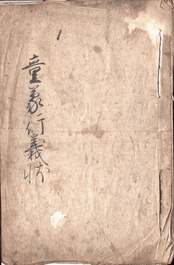 童蒙行義抄